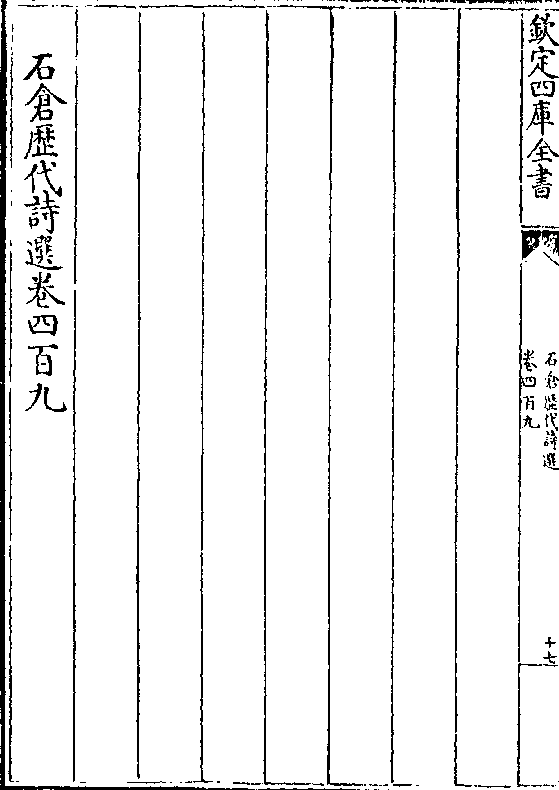 欽定四庫全書
石倉歷代詩選
卷四百九
十七
石倉歷代詩選卷四百九